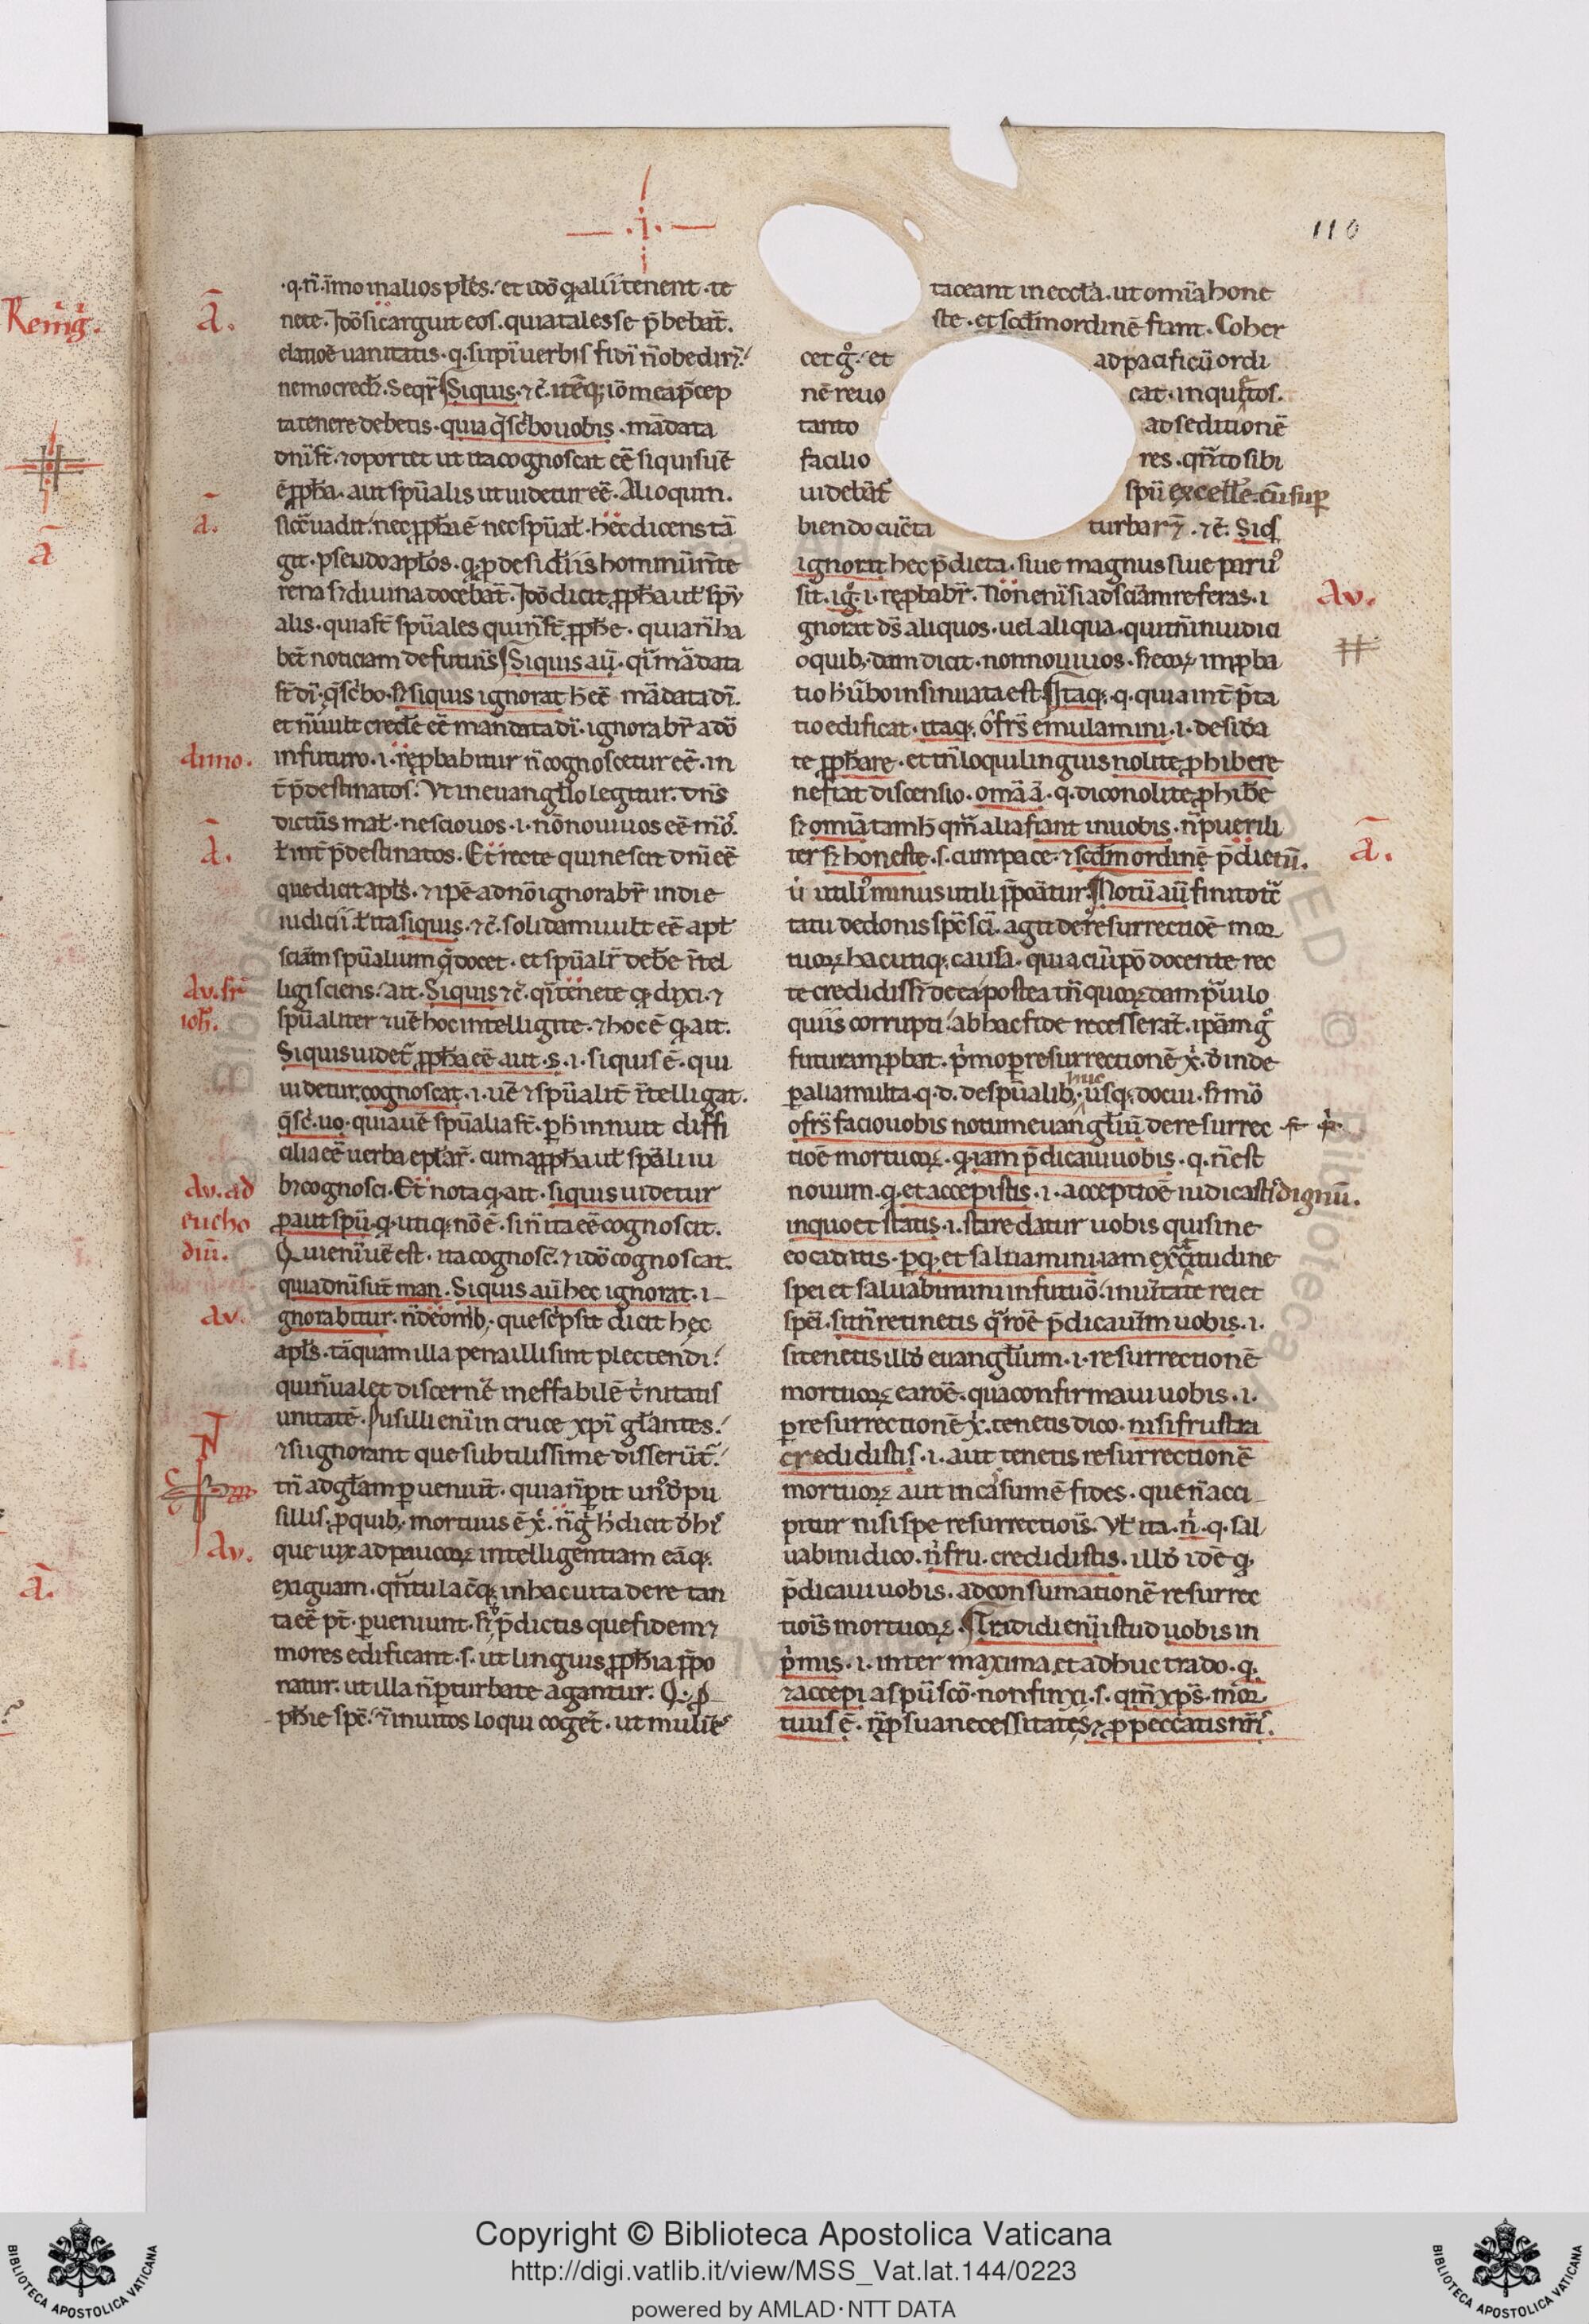 ·i·
110
Remig̅.
·q·n̄·īmo in alios pl̄es. et idō q̣ alii tenent · te
nete. Idō sic arguit eos. quia tales se p̄bebāt.
elatiōē uanitatis · q· sup̄i uerbis
nemo cred̄. Seqr̄ Siquis · ⁊c̄.
ta tenere debetis · quia q̄ sc̄bo uobis · mādata
dn̄i st̄. ⁊ oportet ut ita cognoscat eē̄ siquis ue
ē p̱pħa · aut sp̄ualis ut uidetur eē̄. Alioquin.
nec p̱pħa ē nec sp̄ual̄. hec dicens tā
git · pseudo apl̄os ·
rena s; diuina docebāt. Idō dicit p̱pħa aut sp̄u
alis · quia st̄ sp̄uales qui n̄ st̄ p̱pħe · quia n̄ ha
bēt noticiam de futuris Siquis aū · mādata
st̄ dī · q̄ sc̄bo · s; siquis ignorat hec mādata dī.
et n̄ uult cred̄e eē̄ mandata dī · ignorabr̄ a dō
in futuro · i · rep̱babitur n̄ cognoscetur eē̄ · in
t̄ p̄destinatos. Vt in euangl̄io legitur. dn̄s
dicturus mal̄ · nescio uos · i · nō noui uos eē̄
ł int̄ p̄destinatos. Et recte qui nescit dn̄i eē̄
que dicit apl̄s · ⁊ ipē a dnō ignorabr̄ in die
iudicii. ł ita siquis · ⁊c̄. solidam uult eē̄ apl̄
sciām sp̄ualium q̄ docet · et sp̄ualr̄ deb̄e ītel
ligi sciens. ait. Siquis ⁊c̄. tenete q̣ dixi · ⁊
sp̄ualiter ⁊ uē̄ hoc intelligite · ⁊ hoc ē q̣ ait.
Siquis uidet̄ p̱pħa eē̄ · aut · s · i · siquis ē · qui
uidetur, cognoscat · i · uē̄ ⁊ sp̄ualit̄ ītelligat.
q̄ sc̄ · uo · quia uē̄ sp̄ualia st̄ · p̱ h̄ innuit diffi
cilia eē̄ uerba epl̄ar̄ · cum a p̱pħa aut sp̄ali iu
b; cognosci · Et nota q̣ ait · siquis uidetur
Qui enī uē̄ est · ita cognosc̄ · ⁊ idō cognoscat.
quia dn̄i sūt man. Siquis aū hec ignorat · i
gnorabitur · n̄ de omīb; · que sc̄psit dicit hec
apl̄s · tāquam illa pena illi sint plectendi.
qui n̄ ualet discern̄e ineffabilē t̄nitatis
unitatē · Pusilli enī in cruce xp̄i gl̄antes.
⁊ si ignorant que subtilissime disserūt̄.
tn̄ ad gl̄am p̱ueniūt · quia n̄ p̱it
sillis, p̱ quib; mortuus ē x̄.
que uix ad paucoꝝ intelligentiam eāq;
exiguam · in hac uita de re tan
ta eē̄ pt̄ · p̱ueniunt · s; p̄dictis que fidem ⁊
mores edificant · s · ut linguis p̱pħia p̄po
natur. ut illa n̄ p̱turbate agantur.
pħie spc̄. īuitos loqui coget̄ · ut mulie
taceant in eccl̄a. ut omīa hone
ste · et scd̄m ordinē fiant. Coher
cet g̊. et ad pacificū ordi
nē reuo cat · inquietos.
tanto ad seditionē
facilio res · q̄nto sibi
uidebāt̄ spū excelle · cū sup̱
biendo cūcta turbar̄ · ⁊c̄. Siq̄s
ignorat hec p̄dicta · siue magnus siue paruꝰ
sit. ig̊. i. rep̱babr̄. Non enī si ad sciām referas · i
gnorat ds̄ aliquos · uel aliqua · qui tn̄ in iudici
o quib; dam dicit · non noui uos · s; eoꝝ imp̱ba
tio h̄ uerbo insinuata est. Itaq; · q· quia int̄p̄ta
tio edificat · itaq; o frs̄ emulamini · i · desid̄a
te p̱pħare · et tn̄ loqui linguis nolite p̱hibere
ne fiat discensio · omīa ā · q· dico nolite p̱hib̄e
s; omīa tam̄ q̄m alia fiant in uobis · n̄ puerili
ter s; honeste · s· cum pace · ⁊ scd̄m ordinē p̄dictū.
ū utiliꝰ minus utili p̄ponātur. Notū aū finito tc̄
tatu de donis spc̄ sc̄i. agit de resurrectioē mor
tuoꝝ hac utiq; causa · quia cū ip̄o docente rec
te credidiss; de ea, postea tn̄ quorundam p̄uilo
quiis corrupti · ab hac fide recesserāt · ipām g̊
futuram p̱bat · p̄mo p̱ resurrectionē x̄. deinde
p̱ alia multa · q· d· de sp̄ualib; huc usq; docui · s; mō
o frs̄ facio uobis notum euangl̄iū de resurrec
tioē mortuoꝝ · q̣ iam p̄dicaui uobis · q· n̄ est
nouum · q· et accepistis · i· acceptioē iudicastis dignū.
in quo et statis · i· stare datur uobis qui sine
eo caditis · p̱ q; et saluamini, iam ex certitudine
spei et saluabimini in futuō. in ueritate rei et
spei. si tn̄ retinetis q̄ roē p̄dicauim uobis · i·
si tenetis illud euangl̄ium · i· resurrectionē
mortuoꝝ ea roē · qua confirmaui uobis · i·
p̱ resurrectionē x̄. tenetis dico · nisi frustra
credidistis · i· aut tenetis resurrectionē
mortuoꝝ aut incassum ē fides · que n̄ acci
pitur nisi spe resurrectiois. Vł ita · n̄ · q· sal
uabini dico · n̄ fru. credidistis. illud idē q̣
p̄dicaui uobis · ad consumationē resurrec
tiois mortuoꝝ. Tradidi enī istud uobis in
p̄mis · i· inter maxima, et adhuc trado · q·
⁊ accepi a spū scō · non finxi · s· q̄m xp̄s mor
tuus ē · n̄ p̱ sua necessitate, s; p̱ peccatis nr̄is.
Ā.
Ā.
A.
dnno.
Ā.
Av. sr̄
ioħ.
Av. ad
eucho
diū.
Av.
Av.
Ā.
Av.
Ā.
Copyright © Biblioteca Apostolica Vaticana
http://digi.vatlib.it/view/MSS_Vat.lat.144/0223
powered by AMLAD · NTT DATA
BIBLIOTECA APOSTOLICA VATICANA
BIBLIOTECA APOSTOLICA VATICANA